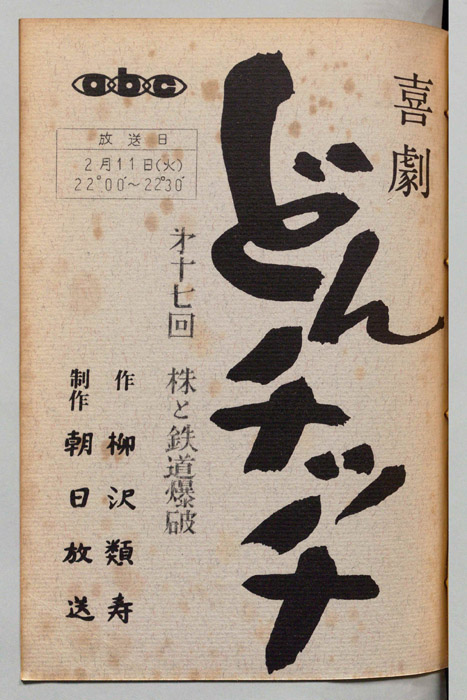 喜劇
どんチッチ
abc
放送日
2月11日(火)
22°00′~22°30′
才十七回 株と鉄道爆破
作 柳沢類寿
制作 朝日放送